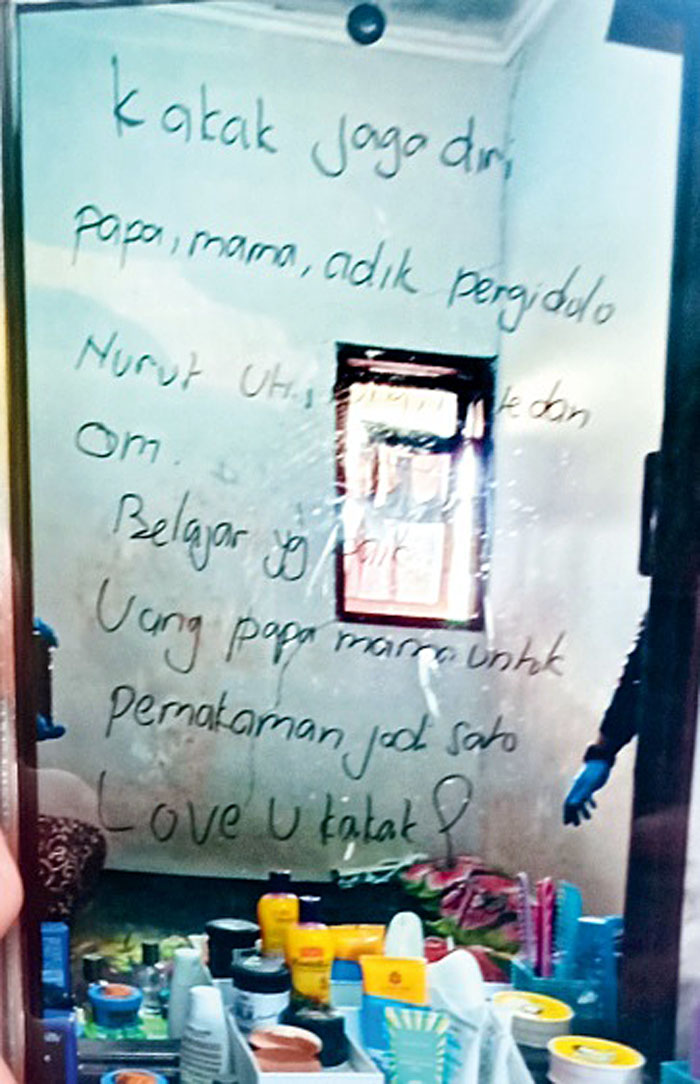 kakak jaga diri
papa, mama, adik pergi dolo
Nurut Uti, te dan
Om.
Belajar yg baik
Uang papa mama untuk
pemakaman jadi sato
Love U kakak